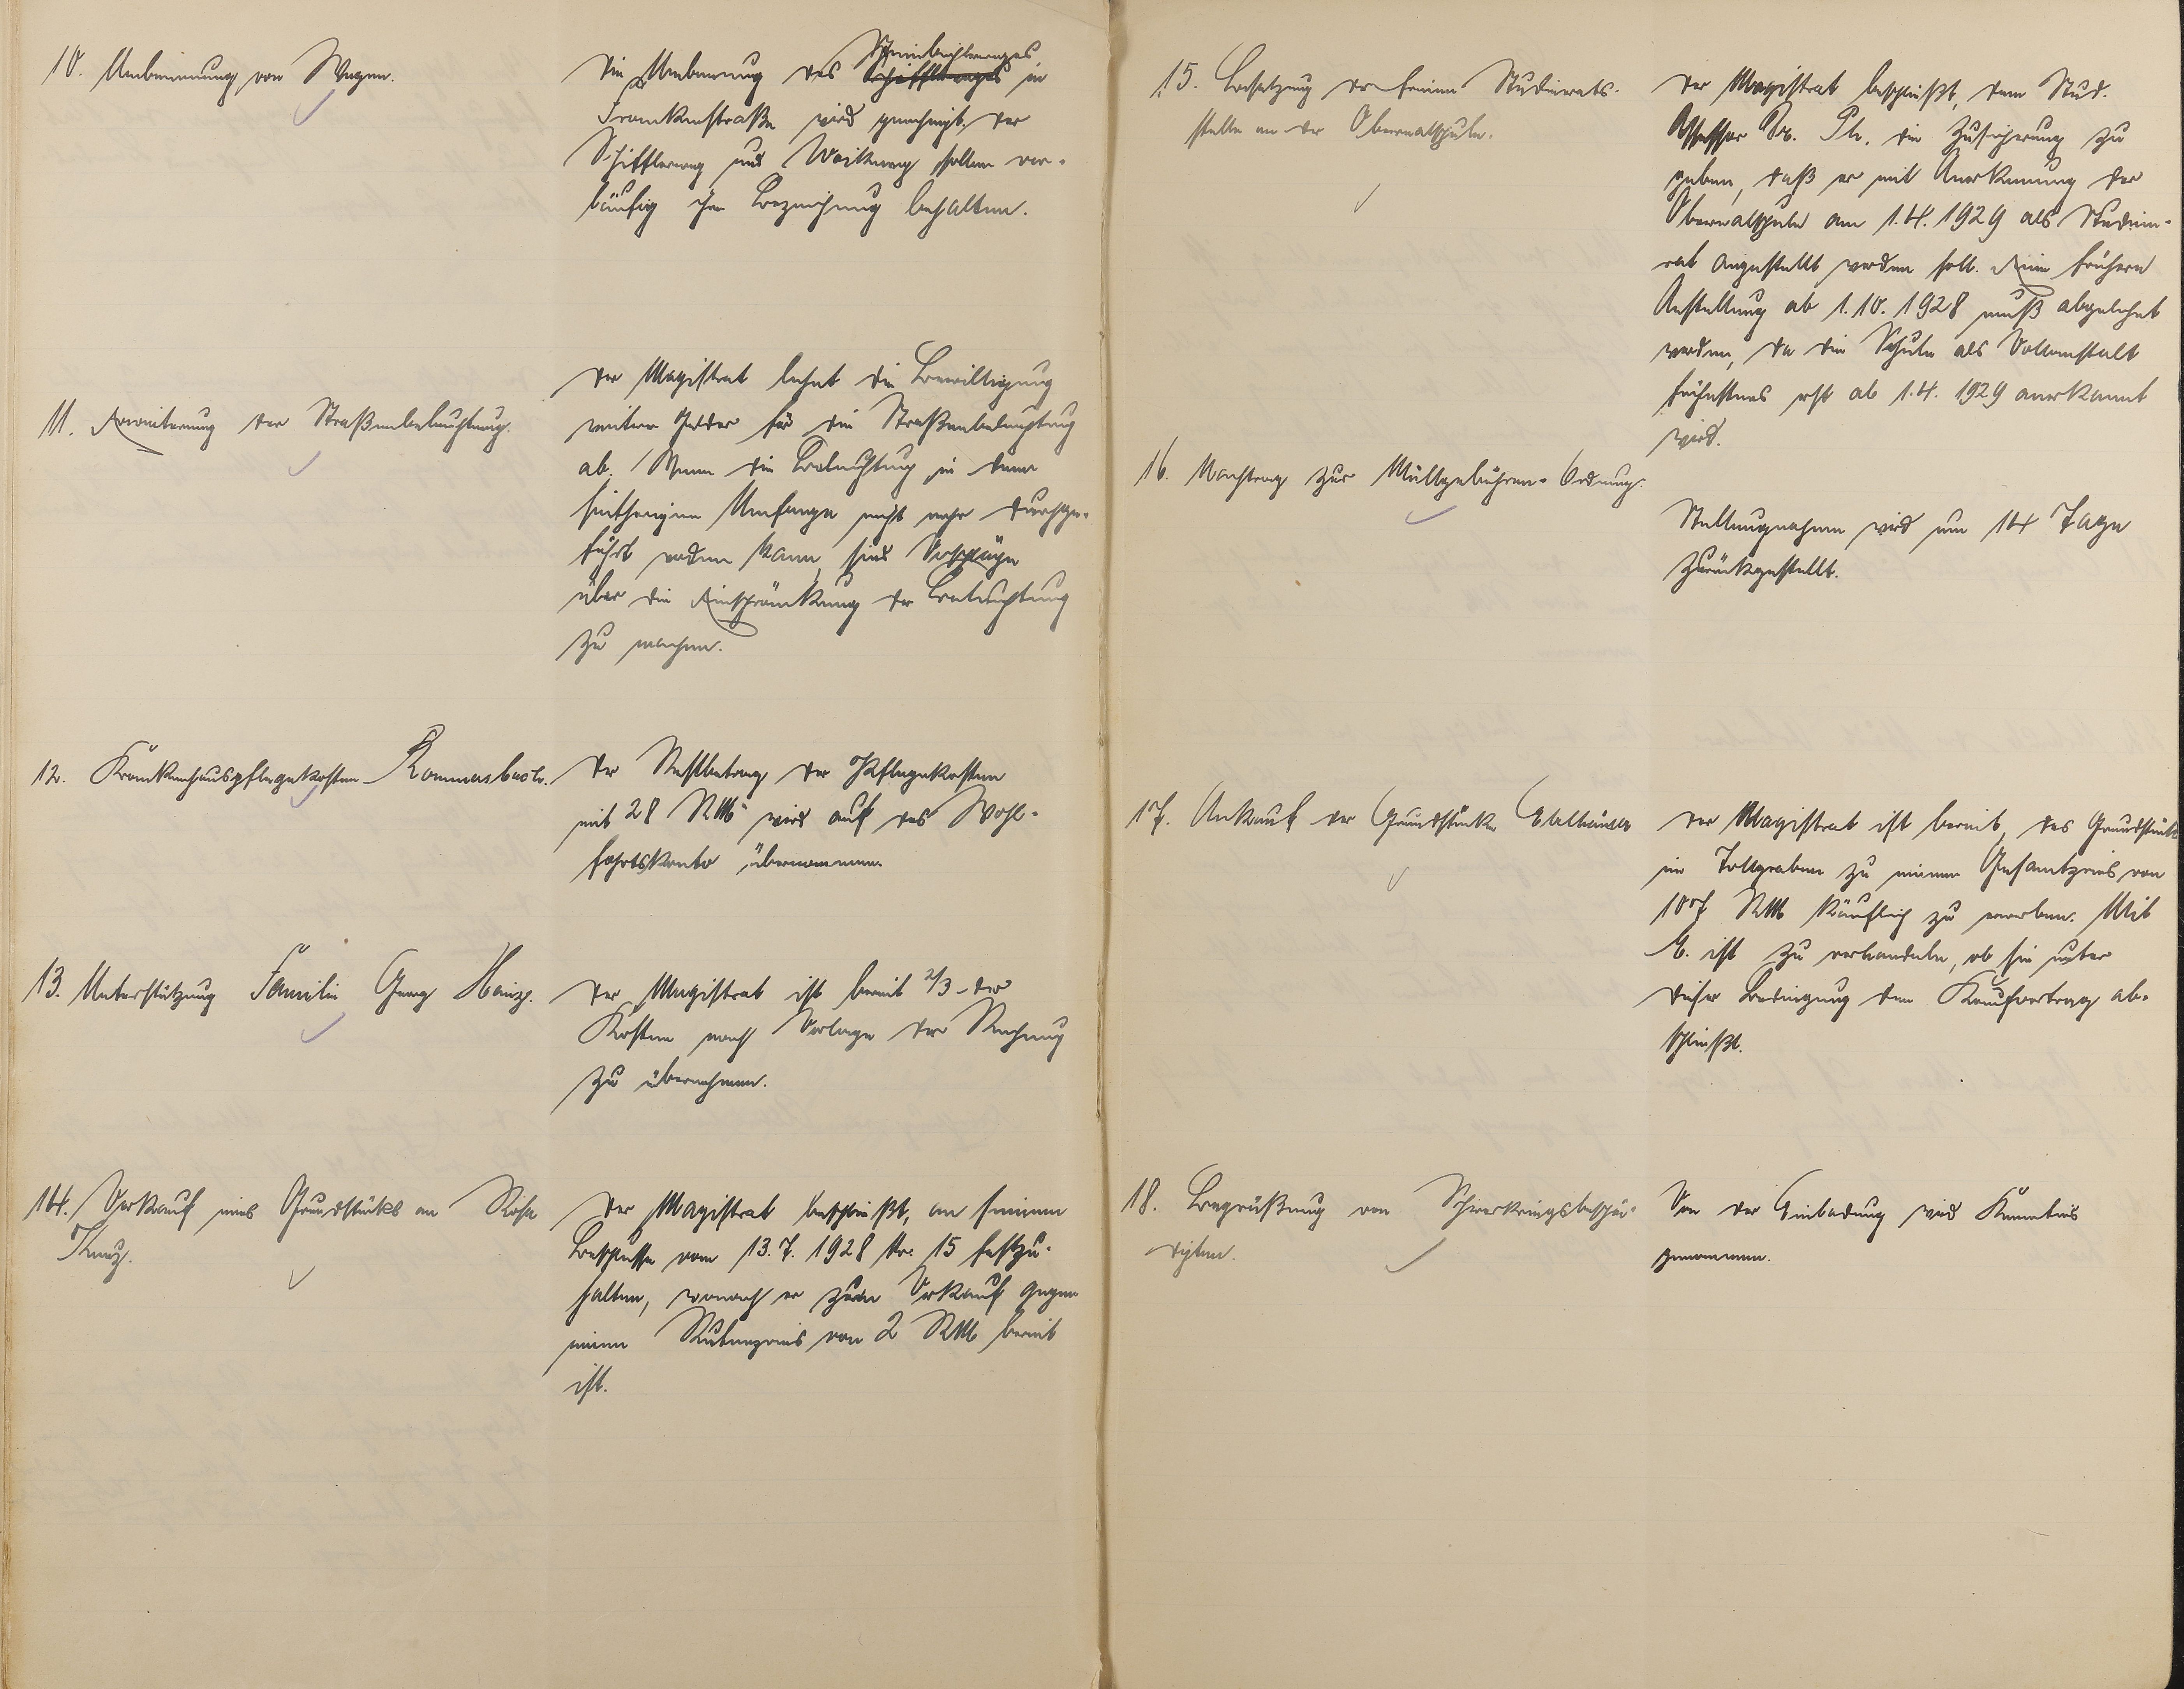 10. Umbenennung von Wegen.
Die Umbenennung des Steinbuchlerweges in
Frankenstraße wird genehmigt. Der
Schifflerweg und Weikweg sollen vor-
läufig ihre Bezeichnung behalten.
11. Erweiterung der Straßenbeleuchtung.
Der Magistrat lehnt die Bewilligung
weiterer Gelder für die Straßenbeleuchtung
ab. Wenn die Beleuchtung in dem
seitherigen Umfange nicht mehr durchge-
führt werden kann, sind Vorschläge
über die Einschränkung der Beleuchtung
zu machen.
12. Krankenhauspflegekosten Rommersbach.
Der Restbetrag der Pflegekosten
mit 28 RM wird auf das Wohl-
fahrtskonto übernommen.
13. Unterstützung Familie Georg Heinz.
Der Magistrat ist bereit 2/3 der
Kosten nach Vorlage der Rechnung
zu übernehmen.
14. Verkauf eines Grundstückes an Rosa
Kunz.
Der Magistrat beschließt, an seinem
Beschlusse vom 13.7.1928 Nr. 15 festzu-
halten, wonach er zum Verkauf gegen
einen Rutenpreis von 2 RM bereit
ist.
15. Besetzung der freien Studienrats-
stelle an der Oberrealschule.
Der Magistrat beschließt, dem Stud.
Assessor Dr. Pl. die Zusicherung zu
geben, daß er mit Anerkennung der
Oberrealschule am 1.4.1929 als Studien-
rat angestellt werden soll. Eine frühere
Anstellung ab 1.10.1928 muß abgelehnt
werden, da die Schule als Vollanstalt
frühestens erst ab 1.4.1929 anerkannt
wird.
16. Nachtrag zur Müllgebühren-Ordnung.
Stellungnahme wird um 14 Tage
zurückgestellt.
17. Ankauf der Grundstücke
Der Magistrat ist bereit, das Grundstück
im Tollgraben zu einem Gesamtpreis von
107 RM käuflich zu erwerben. Mit
E. ist zu verhandeln, ob sie unter
dieser Bedingung den Kaufvertrag ab-
schließt.
18. Begrüßung von Schwerkriegsbeschä-
digten.
Von der Einladung wird Kenntnis
genommen.